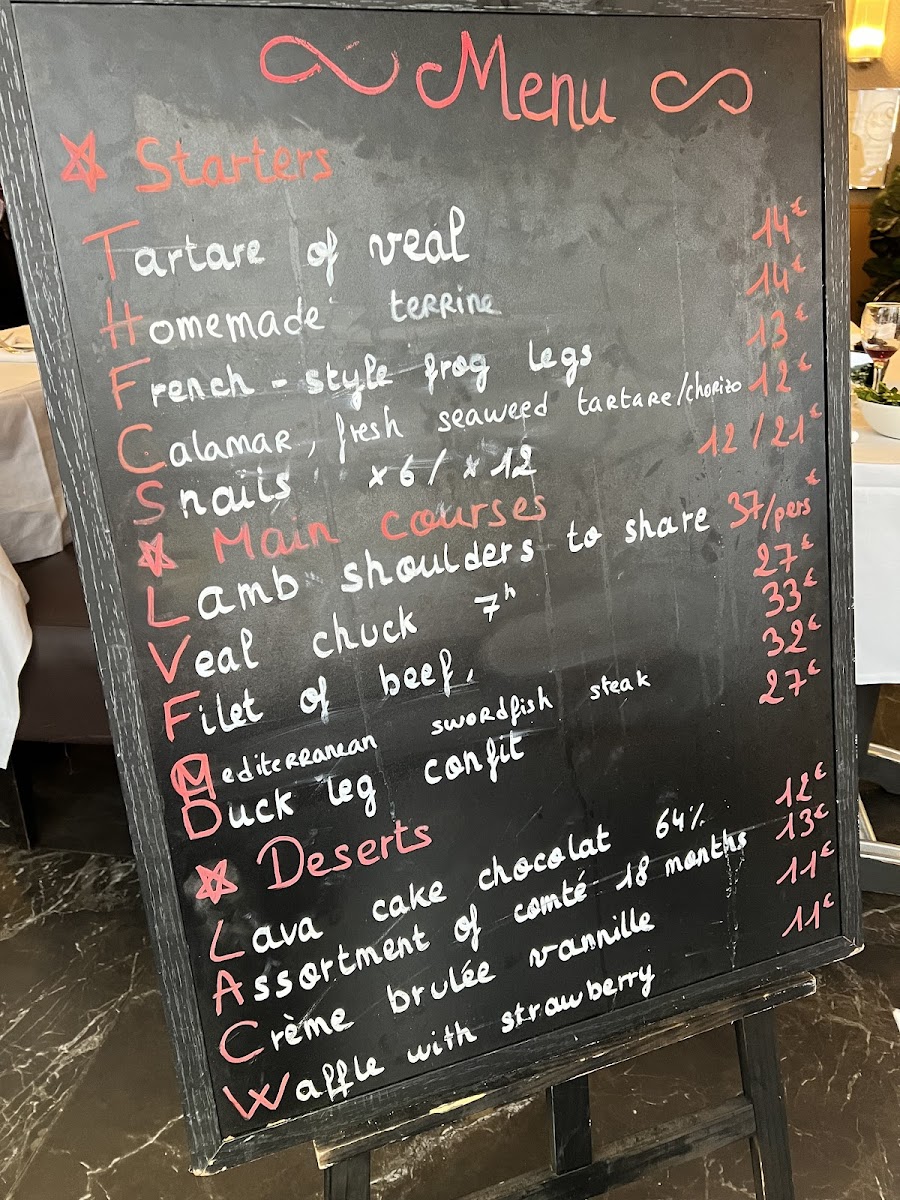 Menu
Starters
Tartare of veal 14€
Homemade terrine 14€
French-style frog legs 13€
Calamar, fresh seaweed tartare/chorizo 12€
Snails x6 / x12 12/21€
Main courses
Lamb shoulders to share 37/pers€
Veal chuck 7h 27€
Filet of beef, 33€
Mediterranean swordfish steak 32€
Duck leg confit 27€
Deserts
Lava cake chocolat 64% 12€
Assortment of comté 18 months 13€
Crème brulée vannille 11€
Waffle with strawberry 11€